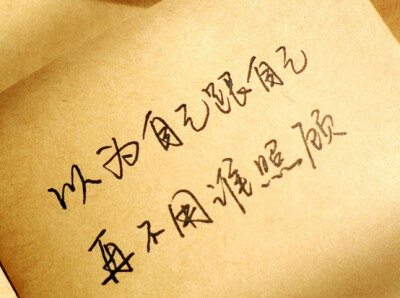 以为自己跟自己
再不用谁照顾